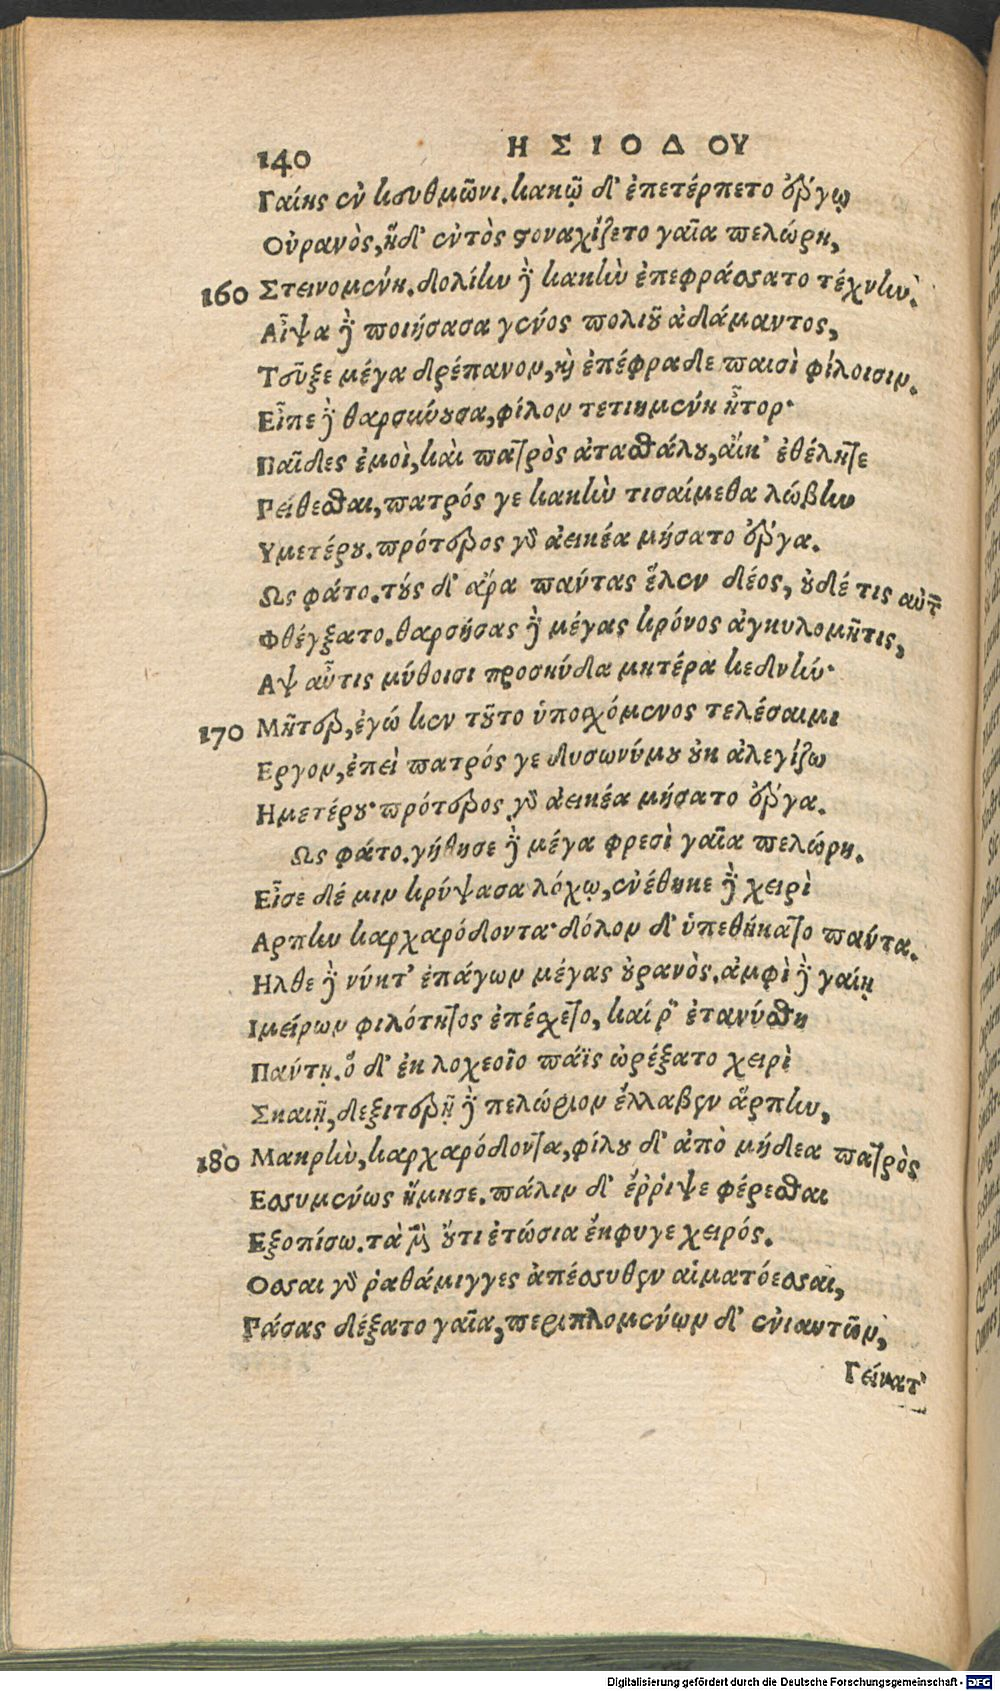 140
ΗΣΙΟΔΟΥ
Γαίης ἐν κευθμῶνι. κακῷ δ' ἐπετέρπετο ἔργῳ
Οὐρανὸς, ἥδ' ἐντὸς στοναχίζετο γαῖα πελώρη,
160 Στεινομένη. δολίην δὲ κακὴν ἐπεφράσσατο τέχνην.
Αἶψα δὲ ποιήσασα γένος πολιοῦ ἀδάμαντος,
Τεῦξε μέγα δρέπανον, καὶ ἐπέφραδε παισὶ φίλοισιν.
Εἶπε δὲ θαρσύνουσα, φίλον τετιημένη ἦτορ·
Παῖδες ἐμοὶ, καὶ πατρὸς ἀτασθάλου, αἴκ' ἐθέλητε
Πείθεσθαι, πατρός γε κακὴν τισαίμεθα λώβην
Υμετέρου. πρότερος γὰρ ἀεικέα μήσατο ἔργα.
Ως φάτο. τοὺς δ' ἄρα πάντας ἕλεν δέος, οὐδέ τις αὐτῶν
Φθέγξατο. θαρσήσας δὲ μέγας κρόνος ἀγκυλομῆτις,
Αψ αὖτις μύθοισι προσηύδα μητέρα κεδνήν·
170 Μῆτερ, ἐγώ κεν τοῦτο ὑποσχόμενος τελέσαιμι
Εργον, ἐπεὶ πατρός γε δυσωνύμου οὐκ ἀλεγίζω
Ημετέρου· πρότερος γὰρ ἀεικέα μήσατο ἔργα.
Ως φάτο. γήθησε δὲ μέγα φρεσὶ γαῖα πελώρη.
Εἷσε δέ μιν κρύψασα λόχῳ, ἐνέθηκε δὲ χειρὶ
Αρπην καρχαρόδοντα· δόλον δ' ὑπεθήκατο πάντα.
Ηλθε δὲ νύκτ' ἐπάγων μέγας οὐρανὸς. ἀμφὶ δὲ γαίῃ
Ιμείρων φιλότητος ἐπέσχετο, καί ῥ' ἐτανύσθη
Πάντη. ὁ δ' ἐκ λοχεοῖο πάϊς ὠρέξατο χειρὶ
Σκαιῇ, δεξιτερῇ δὲ πελώριον ἔλλαβεν ἅρπην,
180 Μακρὴν, καρχαρόδοντα, φίλου δ' ἀπὸ μήδεα πατρὸς
Εσσυμένως ἤμησε. πάλιν δ' ἔῤῥιψε φέρεσθαι
Εξοπίσω. τὰ μὲν οὔτι ἐτώσια ἔκφυγε χειρός.
Οσσαι γὰρ ῥαθάμιγγες ἀπέσσυθεν αἱματόεσσαι,
Πάσας δέξατο γαῖα, περιπλομένων δ' ἐνιαυτῶν,
Γείνατ'
Digitalisierung gefördert durch die Deutsche Forschungsgemeinschaft - DFG